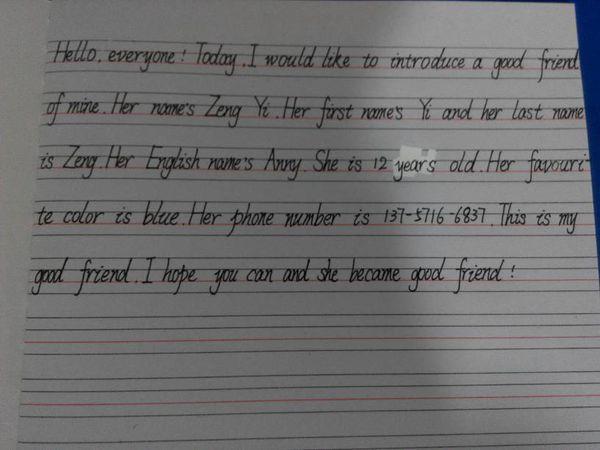 Hello, everyone! Today, I would like to introduce a good friend
of mine. Her name's Zeng Yi. Her first name's Yi and her last name
is Zeng. Her English name's Anny. She is 12 years old. Her favouri-
te color is blue. Her phone number is 137-5716-6837. This is my
good friend. I hope you can and she became good friend!